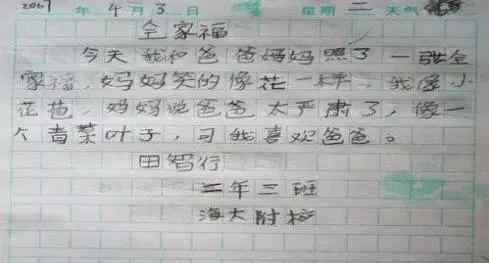 2007年4月3日 星期二 天气
全家福
今天我和爸爸妈妈照了一张全
家福，妈妈笑的像花一样，我像小
花苗，妈妈说爸爸太严肃了，像一
个青菜叶子，可我喜欢爸爸。
田智行
二年三班
海大附校